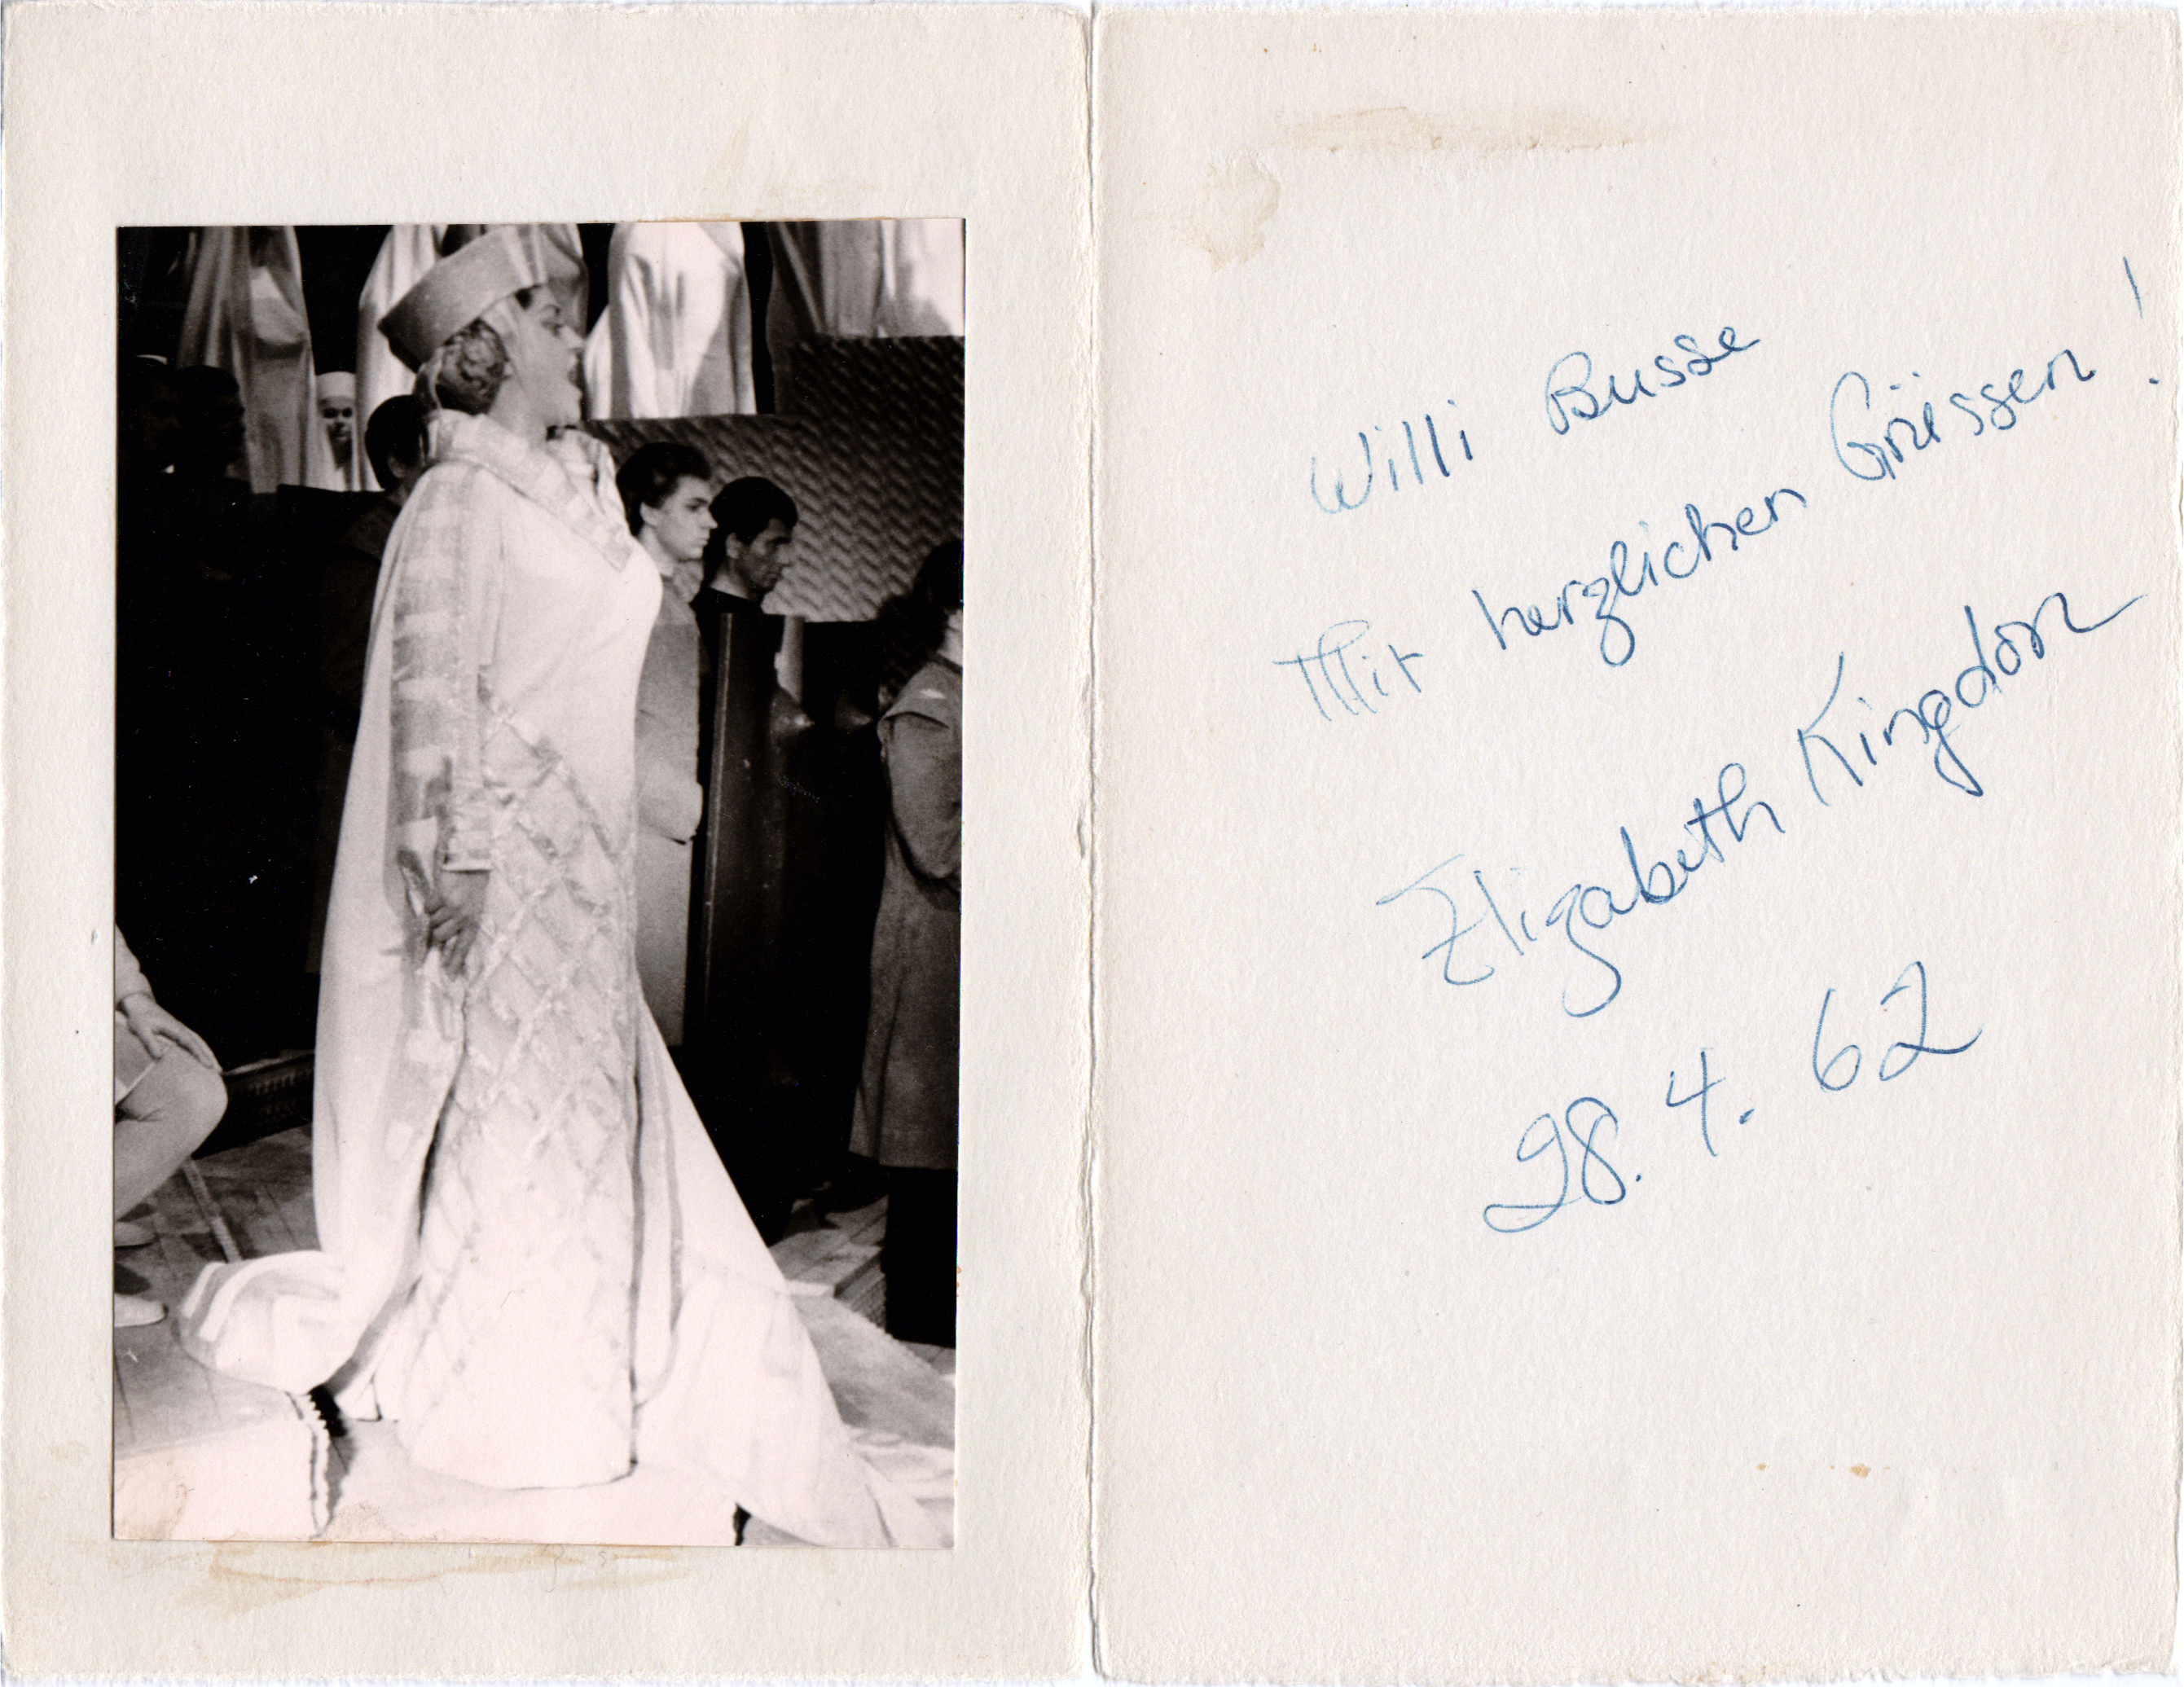 Willi Busse
Mit herzlichen Grüssen!
Elizabeth Kingdon
28.4.62